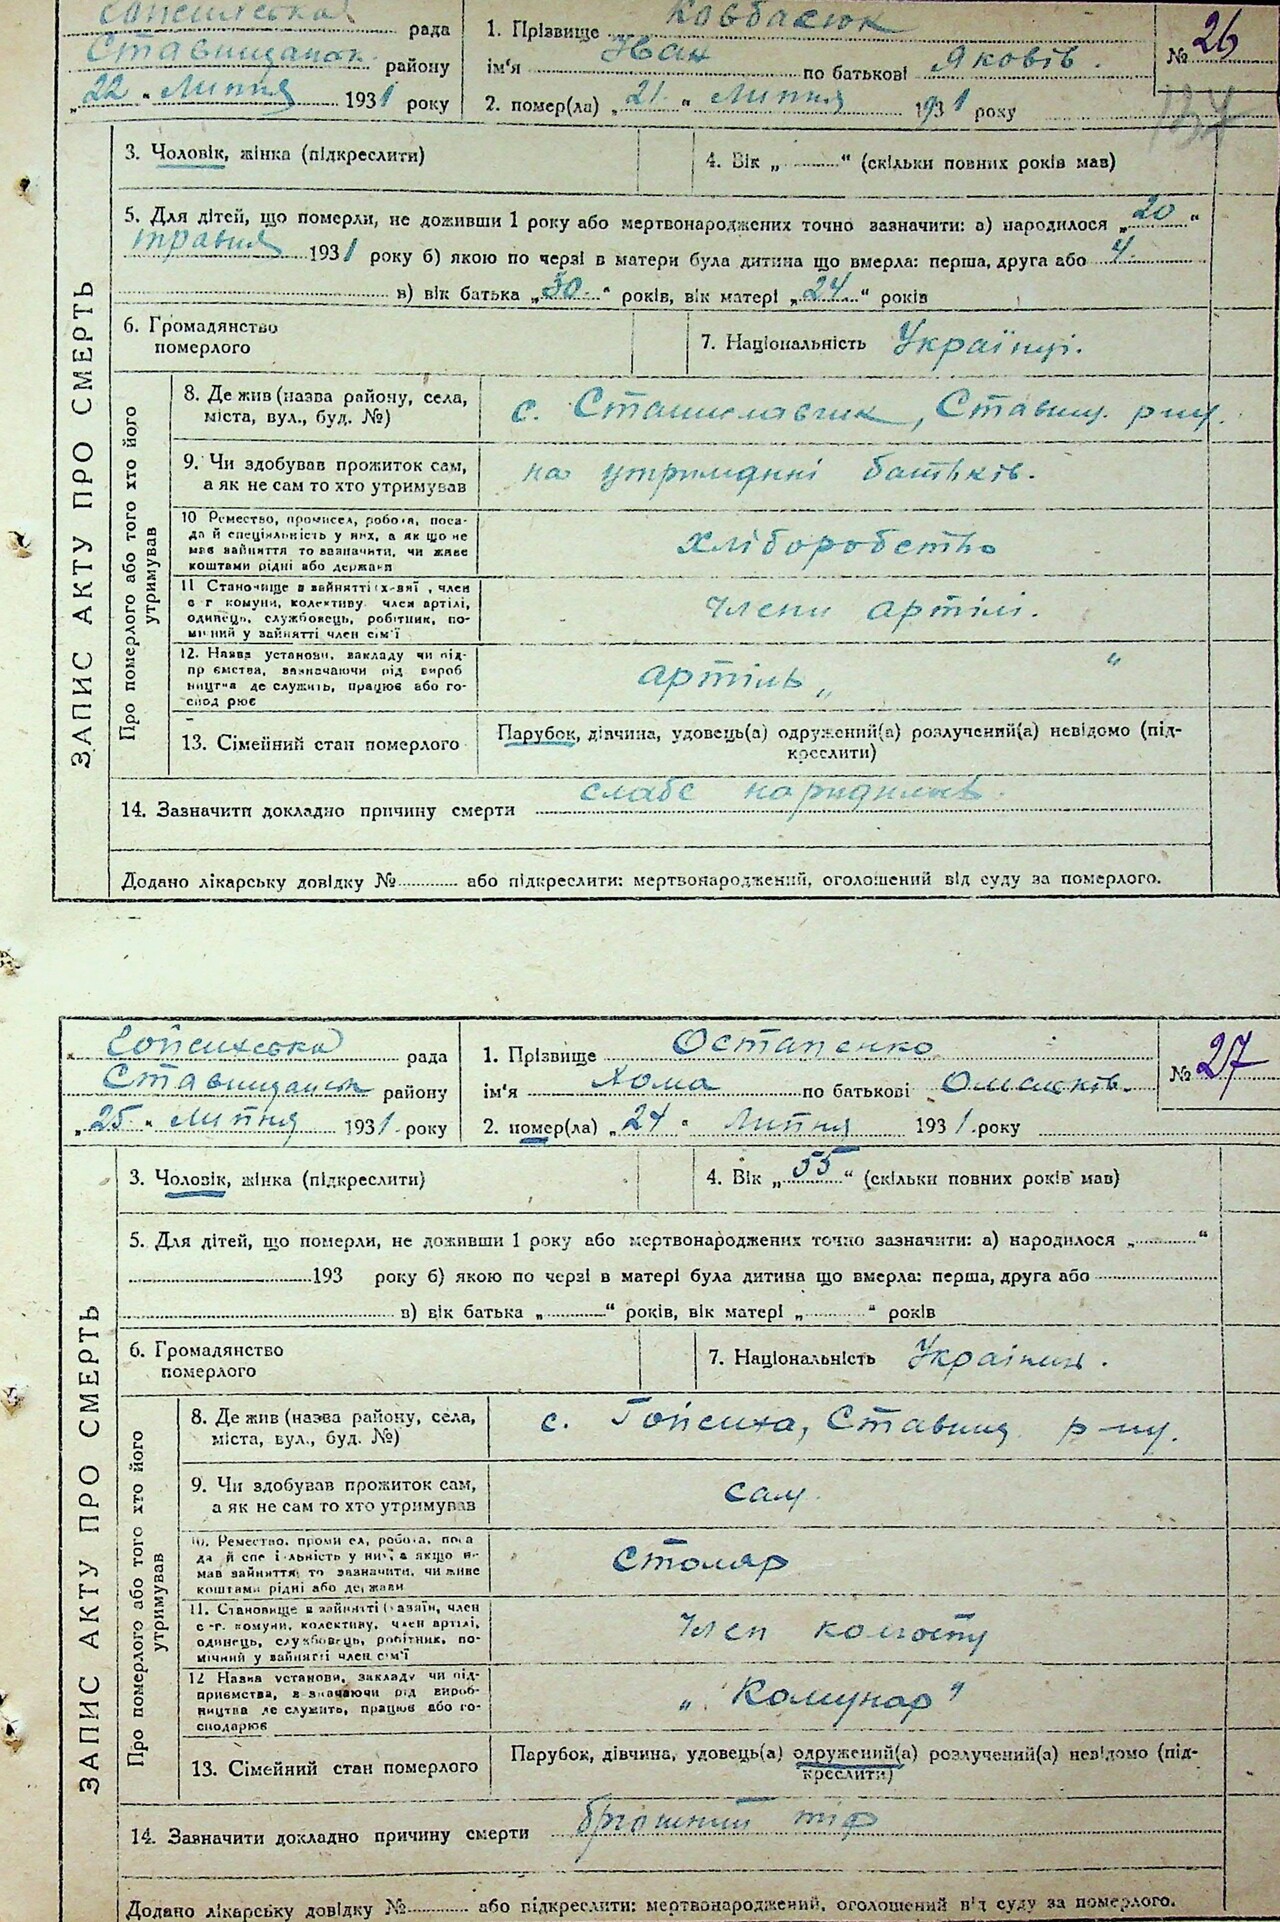 рада
Ставищанськ. району
„22 “ Липня 1931 року
1. Прізвище Ковбасюк
ім'я Іван по батькові Яковів.
2. помер(ла) „21. “ Липня 1931 року
№ 26
137
ЗАПИС АКТУ ПРО СМЕРТЬ
3. Чоловік, жінка (підкреслити)
4. Вік „ “ (скільки повних років мав)
5. Для дітей, що померли, не доживши 1 року або мертвонароджених точно зазначити: а) народилося „20“
травня 1931 року б) якою по черзі в матери була дитина що вмерла: перша, друга або 4.
в) вік батька „30.“ років, вік матері „24“ років
6. Громадянство
померлого
7. Національність Українці.
Про померлого або того хто його
утримував
8. Де жив (назва району, села,
міста, вул., буд. №)
с. Станиславчик, Ставищ. р-ну.
9. Чи здобував прожиток сам,
а як не сам то хто утримував
на утриманні батьків.
10 Ремество, промисел, робота, поса-
да й спеціяльність у них, а як що не
мав зайняття то зазначити, чи живе
коштами рідні або держави
хліборобство
11 Становище в зайнятті , член
с г комуни, колективу член артілі,
одинець, службовець, робітник, по-
мічний у зайнятті член сім'ї
члени артілі.
12. Назва установи, закладу чи під-
пр ємства, зазначаючи рід вироб
ництва де служить, працює або го-
спод рює
артіль „ “
13. Сімейний стан померлого
Парубок, дівчина, удовець(а) одружений(а) розлучений(а) невідомо (під-
креслити)
14. Зазначити докладно причину смерти слабе
Додано лікарську довідку № або підкреслити: мертвонароджений, оголошений від суду за померлого.
Гойсихська рада
Ставищанськ району
„25. “ Липня 1931. року
1. Прізвище Остапенко
ім'я Хома по батькові
2. помер(ла) „24 “ Липня 1931. року
№ 27
ЗАПИС АКТУ ПРО СМЕРТЬ
3. Чоловік, жінка (підкреслити)
4. Вік „55“ (скільки повних років мав)
5. Для дітей, що померли, не доживши 1 року або мертвонароджених точно зазначити: а) народилося „ “
193 року б) якою по черзі в матері була дитина що вмерла: перша, друга або
в) вік батька „ “ років, вік матері „ “ років
6. Громадянство
померлого
7. Національність Українец.
Про померлого або того хто його
утримував
8. Де жив (назва району, села,
міста, вул., буд. №)
с. Гойсиха, Ставищ р-ну.
9. Чи здобував прожиток сам,
а як не сам то хто утримував
сам
10. Ремество, проми ел, робота, поса
да й спе і льність у них, а якщо н-
мав зайняття то зазначити, чи живе
коштами рідні або держави
Столяр
11. Становище в зайнятті , член
с-г. комуни, колективу, член артілі,
одинець, службовець, робітник, по-
мічний у зайнятті член сім'ї
Член колгоспу
12 Назва установи, закладу чи під-
приємства, зазначаючи рід вироб-
ництва де служить, працює або го-
сподарює
„Комунар“
13. Сімейний стан померлого
Парубок, дівчина, удовець(а) одружений(а) розлучений(а) невідомо (під-
креслити)
14. Зазначити докладно причину смерти брюшний тіф
Додано лікарську довідку № або підкреслити: мертвонароджений, оголошений від суду за померлого.